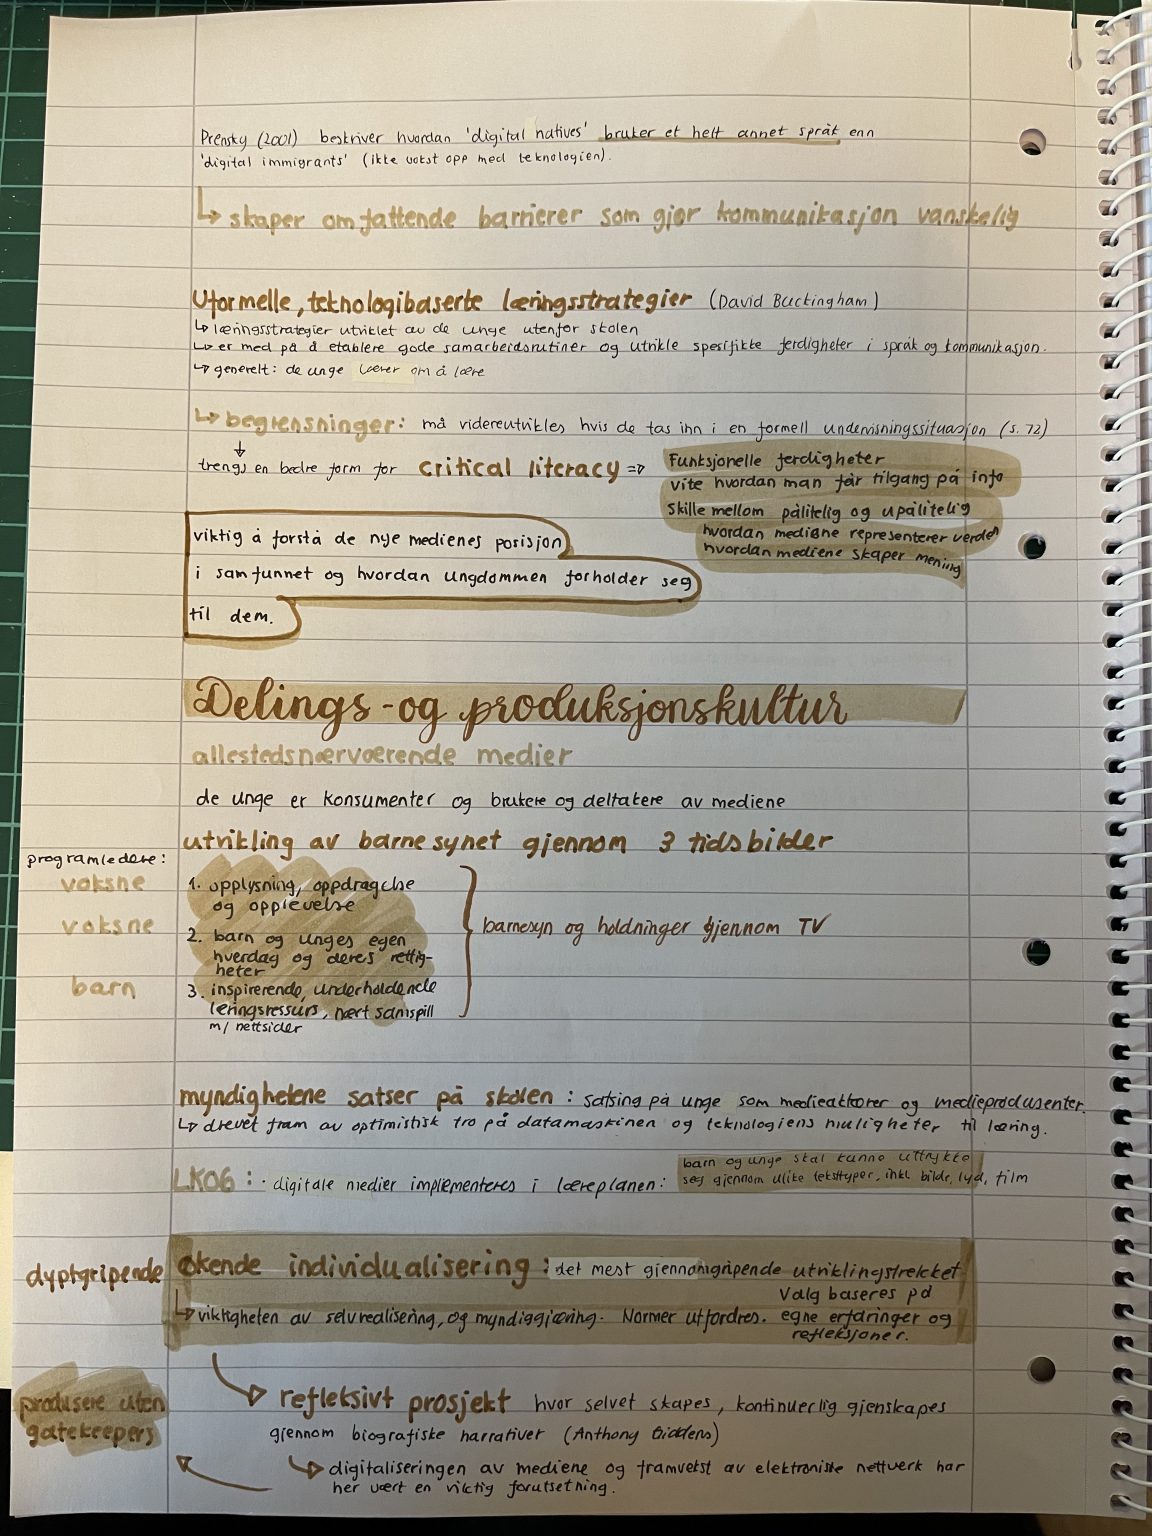 Prensky (2001) beskriver hvordan 'digital natives' bruker et helt annet språk enn
'digital immigrants' (ikke vokst opp med teknologien).
↳ skaper omfattende barrierer som gjør kommunikasjon vanskelig
Uformelle, teknologibaserte læringsstrategier (David Buckingham)
↳ læringsstrategier utviklet av de unge utenfor skolen
↳ er med på å etablere gode samarbeidsrutiner og utvikle spesifikke ferdigheter i språk og kommunikasjon.
↳ generelt: de unge lærer om å lære
↳ begrensninger: må videreutvikles hvis de tas inn i en formell undervisningssituasjon (s. 72)
↓
trengs en bedre form for critical literacy ⇒
Funksjonelle ferdigheter
vite hvordan man får tilgang på info
Skille mellom pålitelig og upålitelig
hvordan mediene representerer verden
hvordan mediene skaper mening
viktig å forstå de nye medienes posisjon
i samfunnet og hvordan ungdommen forholder seg
til dem.
Delings- og produksjonskultur
allestedsnærværende medier
de unge er konsumenter og brukere og deltakere av mediene
utvikling av barnesynet gjennom 3 tidsbilder
programledere:
voksne
1. opplysning, oppdragelse
og opplevelse
voksne
2. barn og unges egen
hverdag og deres rettig-
heter
barn
3. inspirerende, underholdende
læringsressurs, nært samspill
m/ nettsider
barnesyn og holdninger gjennom TV
myndighetene satser på skolen: satsing på unge som medieaktører og medieprodusenter.
↳ drevet fram av optimistisk tro på datamaskinen og teknologiens muligheter til læring.
LK06: · digitale medier implementeres i læreplanen:
barn og unge skal kunne uttrykke
seg gjennom ulike teksttyper, inkl. bilde, lyd, film
dyptgripende
økende individualisering: det mest gjennomgripende utviklingstrekket
↳ viktigheten av selvrealisering, og myndiggjøring. Normer utfordres.
Valg baseres på
egne erfaringer og
refleksjoner.
refleksivt prosjekt hvor selvet skapes, kontinuerlig gjenskapes
gjennom biografiske narrativer (Anthony Giddens)
produsere uten
gatekeepers
↳ digitaliseringen av mediene og framvekst av elektroniske nettverk har
her vært en viktig forutsetning.